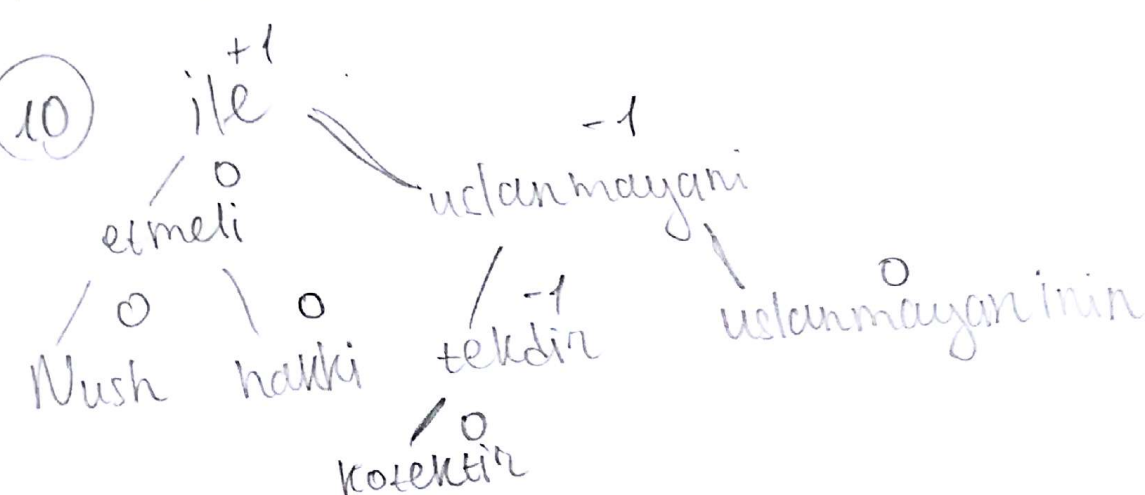 10
ile +1
etmeli 0
uslanmayani -1
Nush 0
hakki 0
tekdir -1
uslanmayaninin 0
kotektir 0